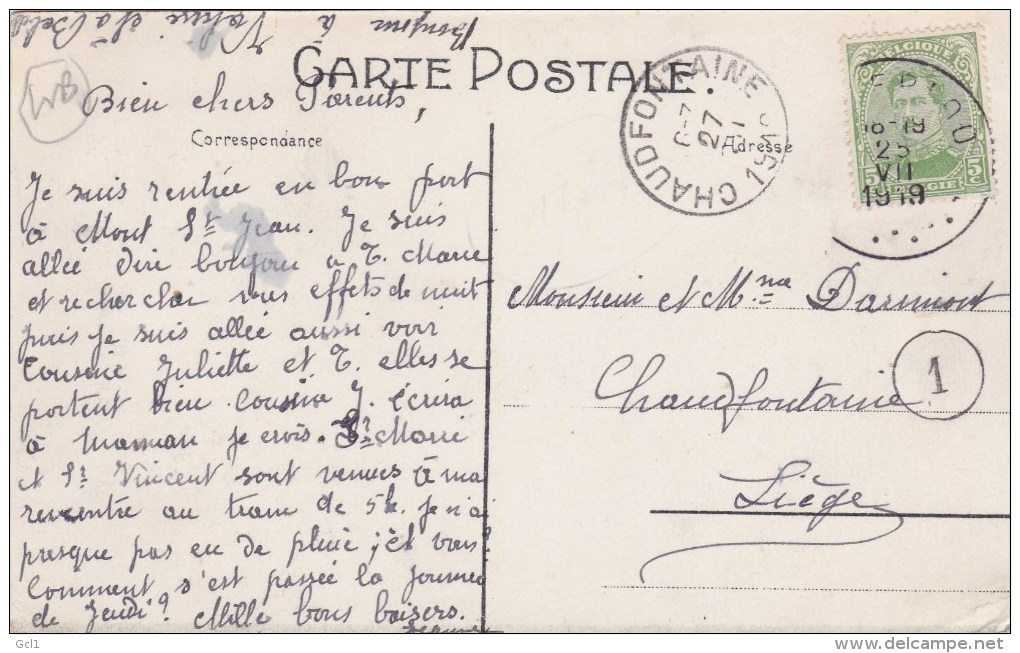 Bonjour à Valérie et à Bebé
CARTE POSTALE.
Bien chers Parents,
Correspondance
Adresse
WB
Je suis rentrée en bon port
à Mont St Jean. Je suis
allée dire bonjour à T. Marie
et rechercher mes effets de nuit
puis je suis allée aussi voir
Cousine Juliette et T. elles se
portent bien. Cousine J. écrira
à maman je crois. Sr Marie
et Sr Vincent sont venues à ma
rencontre au tram de 5h. Je n'ai
presque pas eu de pluie ; et vous?
Comment s'est passée la journée
de Jeudi? Mille bons baisers.
CHAUDFONTAINE
27
1919
BELGIQUE
5c 5c
BELGIE
18-19
25
VII
1919
Monsieur et Mme Darimont
Chaudfontaine
1
Liège
Gcl1
delcampe.net